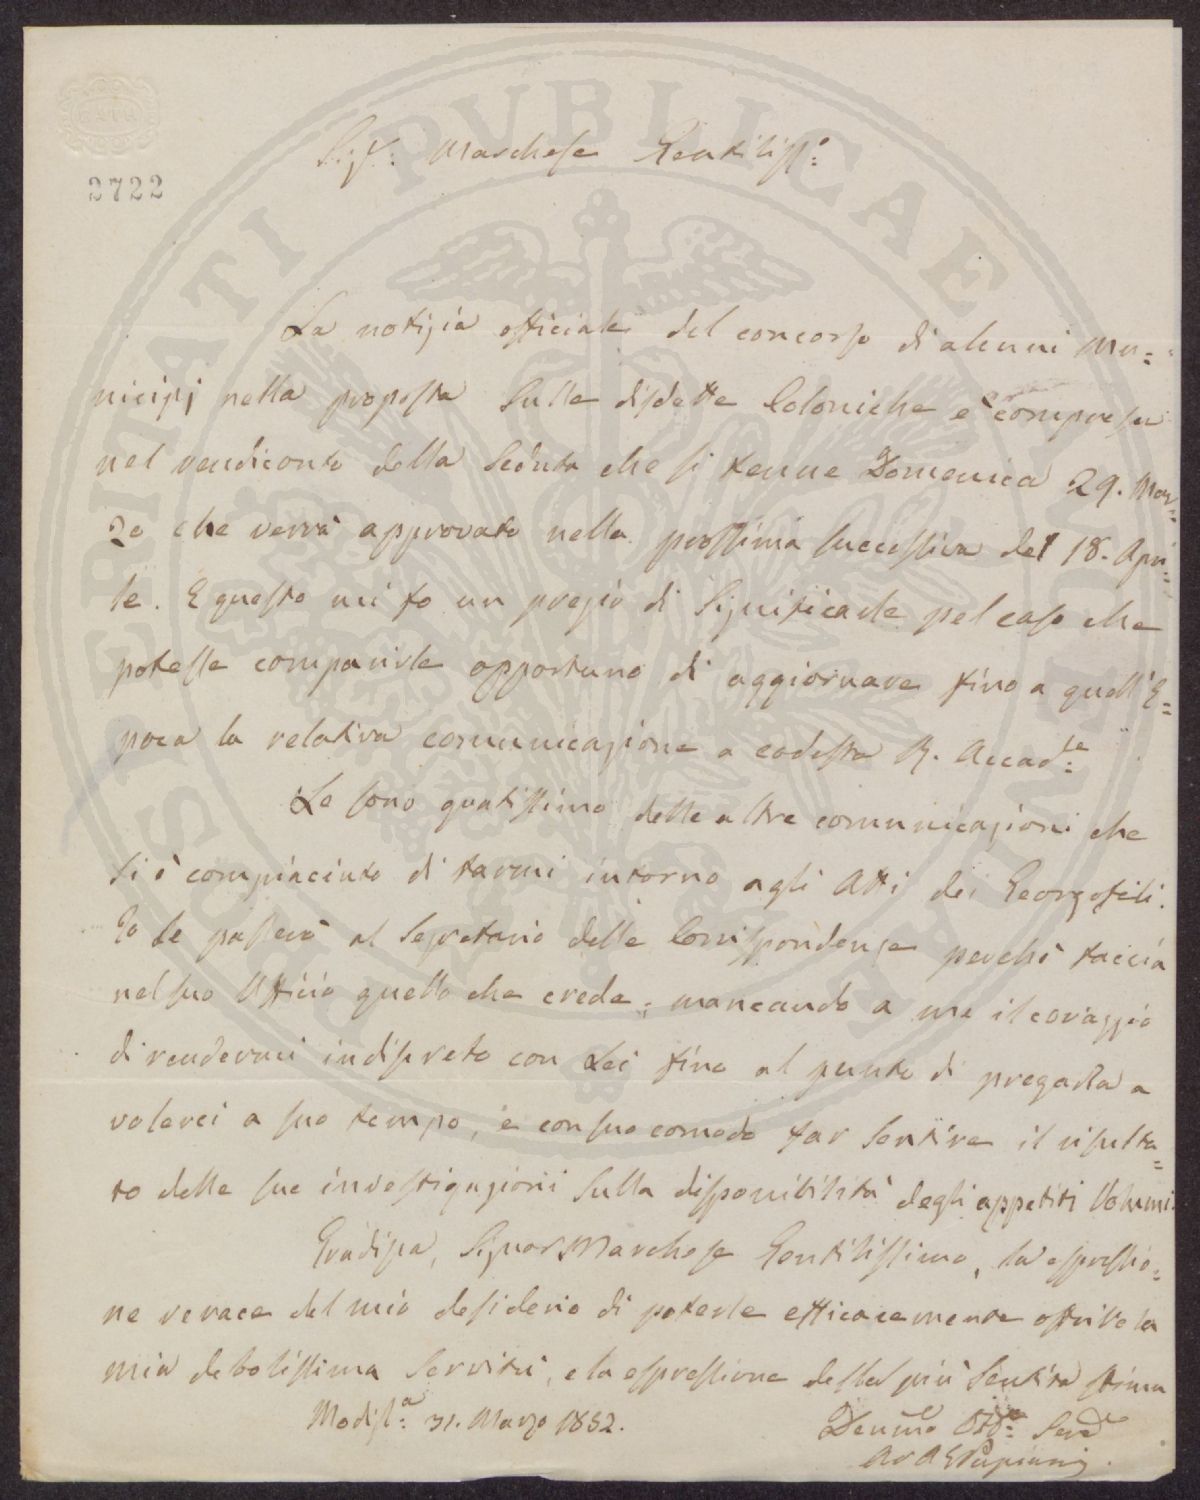 BATH
2722
PROSPERITATI PVBLICAE
Sig.r: Marchese Gentiliss.o:
La notizia officiale del concorso di alcuni Mu=
nicipj nella proposta sulle disdette Coloniche è compresa
nel rendiconto della Seduta che si tenne Domenica 29. Mar=
zo che verrà approvato nella prossima successiva del 18. Apri=
le. E questo mi fo un pregio di significarle pel caso che
potesse comparirle opportuno di aggiornare fino a quell'E=
poca la relativa comunicazione a codesta R. Accad.ia:
Le sono gratissimo delle altre comunicazioni che
si è compiaciuto di farmi intorno agli Atti dei Georgofili.
Io le passerò al Segretario delle Corrispondenze perchè faccia
nel suo Ufficio quello che crede; mancando a me il coraggio
di rendermi indiscreto con Lei fino al punto di pregarla a
volerci a suo tempo, e con suo comodo far sentire il risulta=
to delle sue investigazioni sulla disponibilità degli appetiti Volumi.
Gradisca, Signor Marchese Gentilissimo, la espressio=
ne verace del mio desiderio di poterle efficacemente offrire la
mia debolissima servitù, e la espressione della più sentita stima
Modigl.a: 31. Marzo 1852.
Devmo Obb.: Serv.